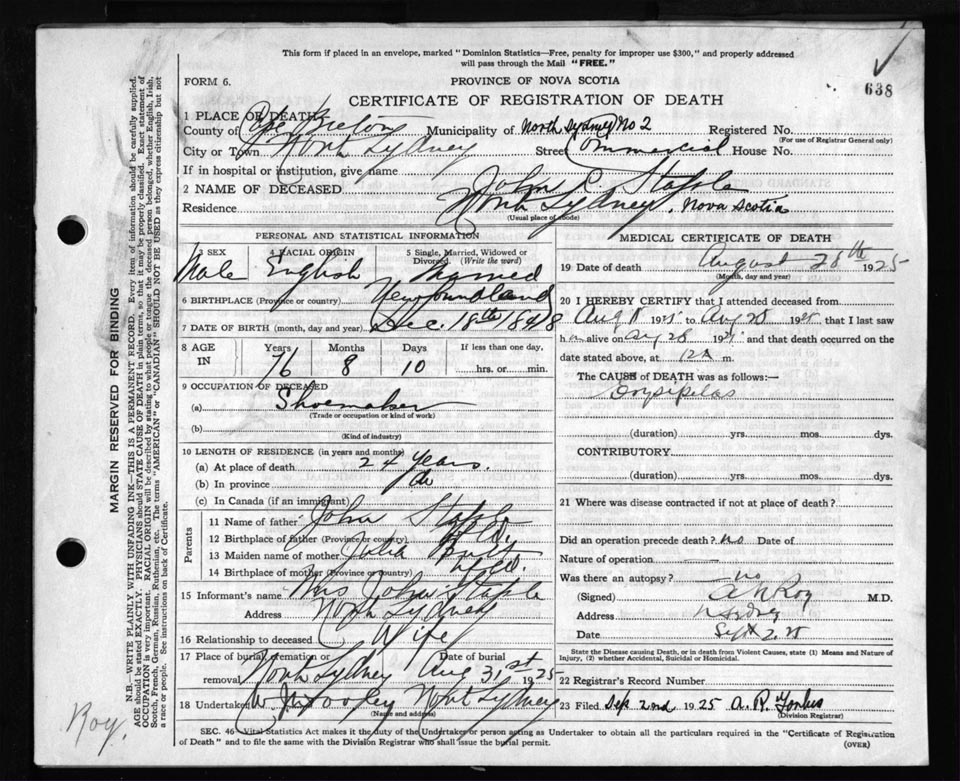 This form if placed in an envelope, marked "Dominion Statistics—Free, penalty for improper use $300," and properly addressed
will pass through the Mail "FREE."
638
FORM 6.
PROVINCE OF NOVA SCOTIA
CERTIFICATE OF REGISTRATION OF DEATH
1 PLACE OF DEATH
County of Cape Breton Municipality of North Sydney No 2 Registered No.
(For use of Registrar General only)
City or Town North Sydney Street Commercial House No.
If in hospital or institution, give name
2 NAME OF DECEASED John C. Staple
Residence North Sydney, Nova Scotia
(Usual place of abode)
PERSONAL AND STATISTICAL INFORMATION
3 SEX 4 RACIAL ORIGIN 5 Single, Married, Widowed or Divorced (Write the word)
Male English Married
6 BIRTHPLACE (Province or country) Newfoundland
7 DATE OF BIRTH (month, day and year) Dec. 18th 1848
8 AGE IN Years Months Days If less than one day,
76 8 10 hrs. or min.
9 OCCUPATION OF DECEASED
(a) Shoemaker
(Trade or occupation or kind of work)
(b)
(Kind of industry)
10 LENGTH OF RESIDENCE (in years and months)
(a) At place of death 24 years.
(b) In province do
(c) In Canada (if an immigrant)
Parents
11 Name of father John Staple
12 Birthplace of father (Province or country) Nfld.
13 Maiden name of mother Julia
14 Birthplace of mother (Province or country) Nfld.
15 Informant's name Mrs John Staple
Address North Sydney
16 Relationship to deceased Wife
17 Place of burial, cremation or removal North Sydney Date of burial Aug 31st 1925
18 Undertaker North Sydney
(Name and address)
MEDICAL CERTIFICATE OF DEATH
19 Date of death August 28th 1925
(Month, day and year)
20 I HEREBY CERTIFY that I attended deceased from
Aug 1925 to Aug 28 1925 that I last saw
h alive on Aug 28 1925 and that death occurred on the
date stated above, at 12 m.
The CAUSE of DEATH was as follows:—
Erysipelas
(duration) yrs. mos. dys.
CONTRIBUTORY
(duration) yrs. mos. dys.
21 Where was disease contracted if not at place of death?
Did an operation precede death? no Date of
Nature of operation
Was there an autopsy? no
(Signed) Roy M.D.
Address N Sydney
Date Sept 2. 25
State the Disease causing Death, or in death from Violent Causes, state (1) Means and Nature of
Injury, (2) whether Accidental, Suicidal or Homicidal.
22 Registrar's Record Number
23 Filed Sep. 2nd 1925 A. R. Forbes
(Division Registrar)
SEC. 46—Vital Statistics Act makes it the duty of the Undertaker or person acting as Undertaker to obtain all the particulars required in the "Certificate of Registration
of Death" and to file the same with the Division Registrar who shall issue the burial permit. (OVER)
MARGIN RESERVED FOR BINDING
N.B.—WRITE PLAINLY WITH UNFADING INK—THIS IS A PERMANENT RECORD. Every item of information should be carefully supplied.
AGE should be stated EXACTLY. PHYSICIANS should STATE CAUSE OF DEATH in plain terms, so that it may be properly classified. Exact statement of
OCCUPATION is very important. RACIAL ORIGIN will be described by stating to what people or tongue the deceased person belonged, whether English, Irish,
Scotch, French, German, Russian, Ruthenian, etc. The terms "AMERICAN" or "CANADIAN" SHOULD NOT BE USED as they express citizenship but not
a race or people. See instructions on back of Certificate.
Roy.